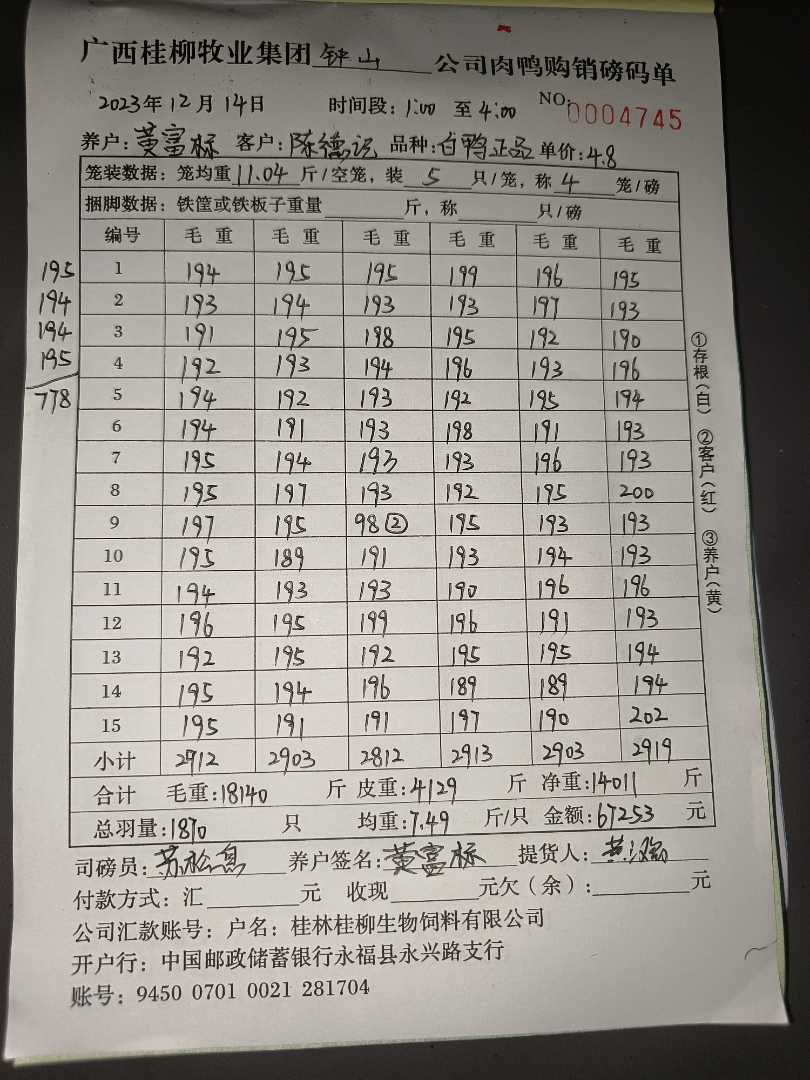 广西桂柳牧业集团 钟山 公司肉鸭购销磅码单
2023年12月14日 时间段: 1:00 至 4:00 NO: 0004745
养户: 黄富标 客户: 陈德记 品种: 白鸭正品 单价: 4.8
笼装数据: 笼均重 11.04 斤/空笼, 装 5 只/笼, 称 4 笼/磅
捆脚数据: 铁筐或铁板子重量 斤, 称 只/磅
编号 毛重 毛重 毛重 毛重 毛重 毛重
1 194 195 195 199 196 195
2 193 194 193 193 197 193
3 191 195 198 195 192 190
4 192 193 194 196 193 196
5 194 192 193 192 195 194
6 194 191 193 198 191 193
7 195 194 193 193 196 193
8 195 197 193 192 195 200
9 197 195 98② 195 193 193
10 195 189 191 193 194 193
11 194 193 193 190 196 196
12 196 195 199 196 191 193
13 192 195 192 195 195 194
14 195 194 196 189 189 194
15 195 191 191 197 190 202
小计 2912 2903 2812 2913 2903 2919
合计 毛重: 18140 斤 皮重: 4129 斤 净重: 14011 斤
总羽量: 1870 只 均重: 7.49 斤/只 金额: 67253 元
司磅员: 养户签名: 黄富标 提货人:
付款方式: 汇 元 收现 元欠(余): 元
公司汇款账号: 户名: 桂林桂柳生物饲料有限公司
开户行: 中国邮政储蓄银行永福县永兴路支行
账号: 9450 0701 0021 281704
195
194
194
195
778
①存根(白) ②客户(红) ③养户(黄)